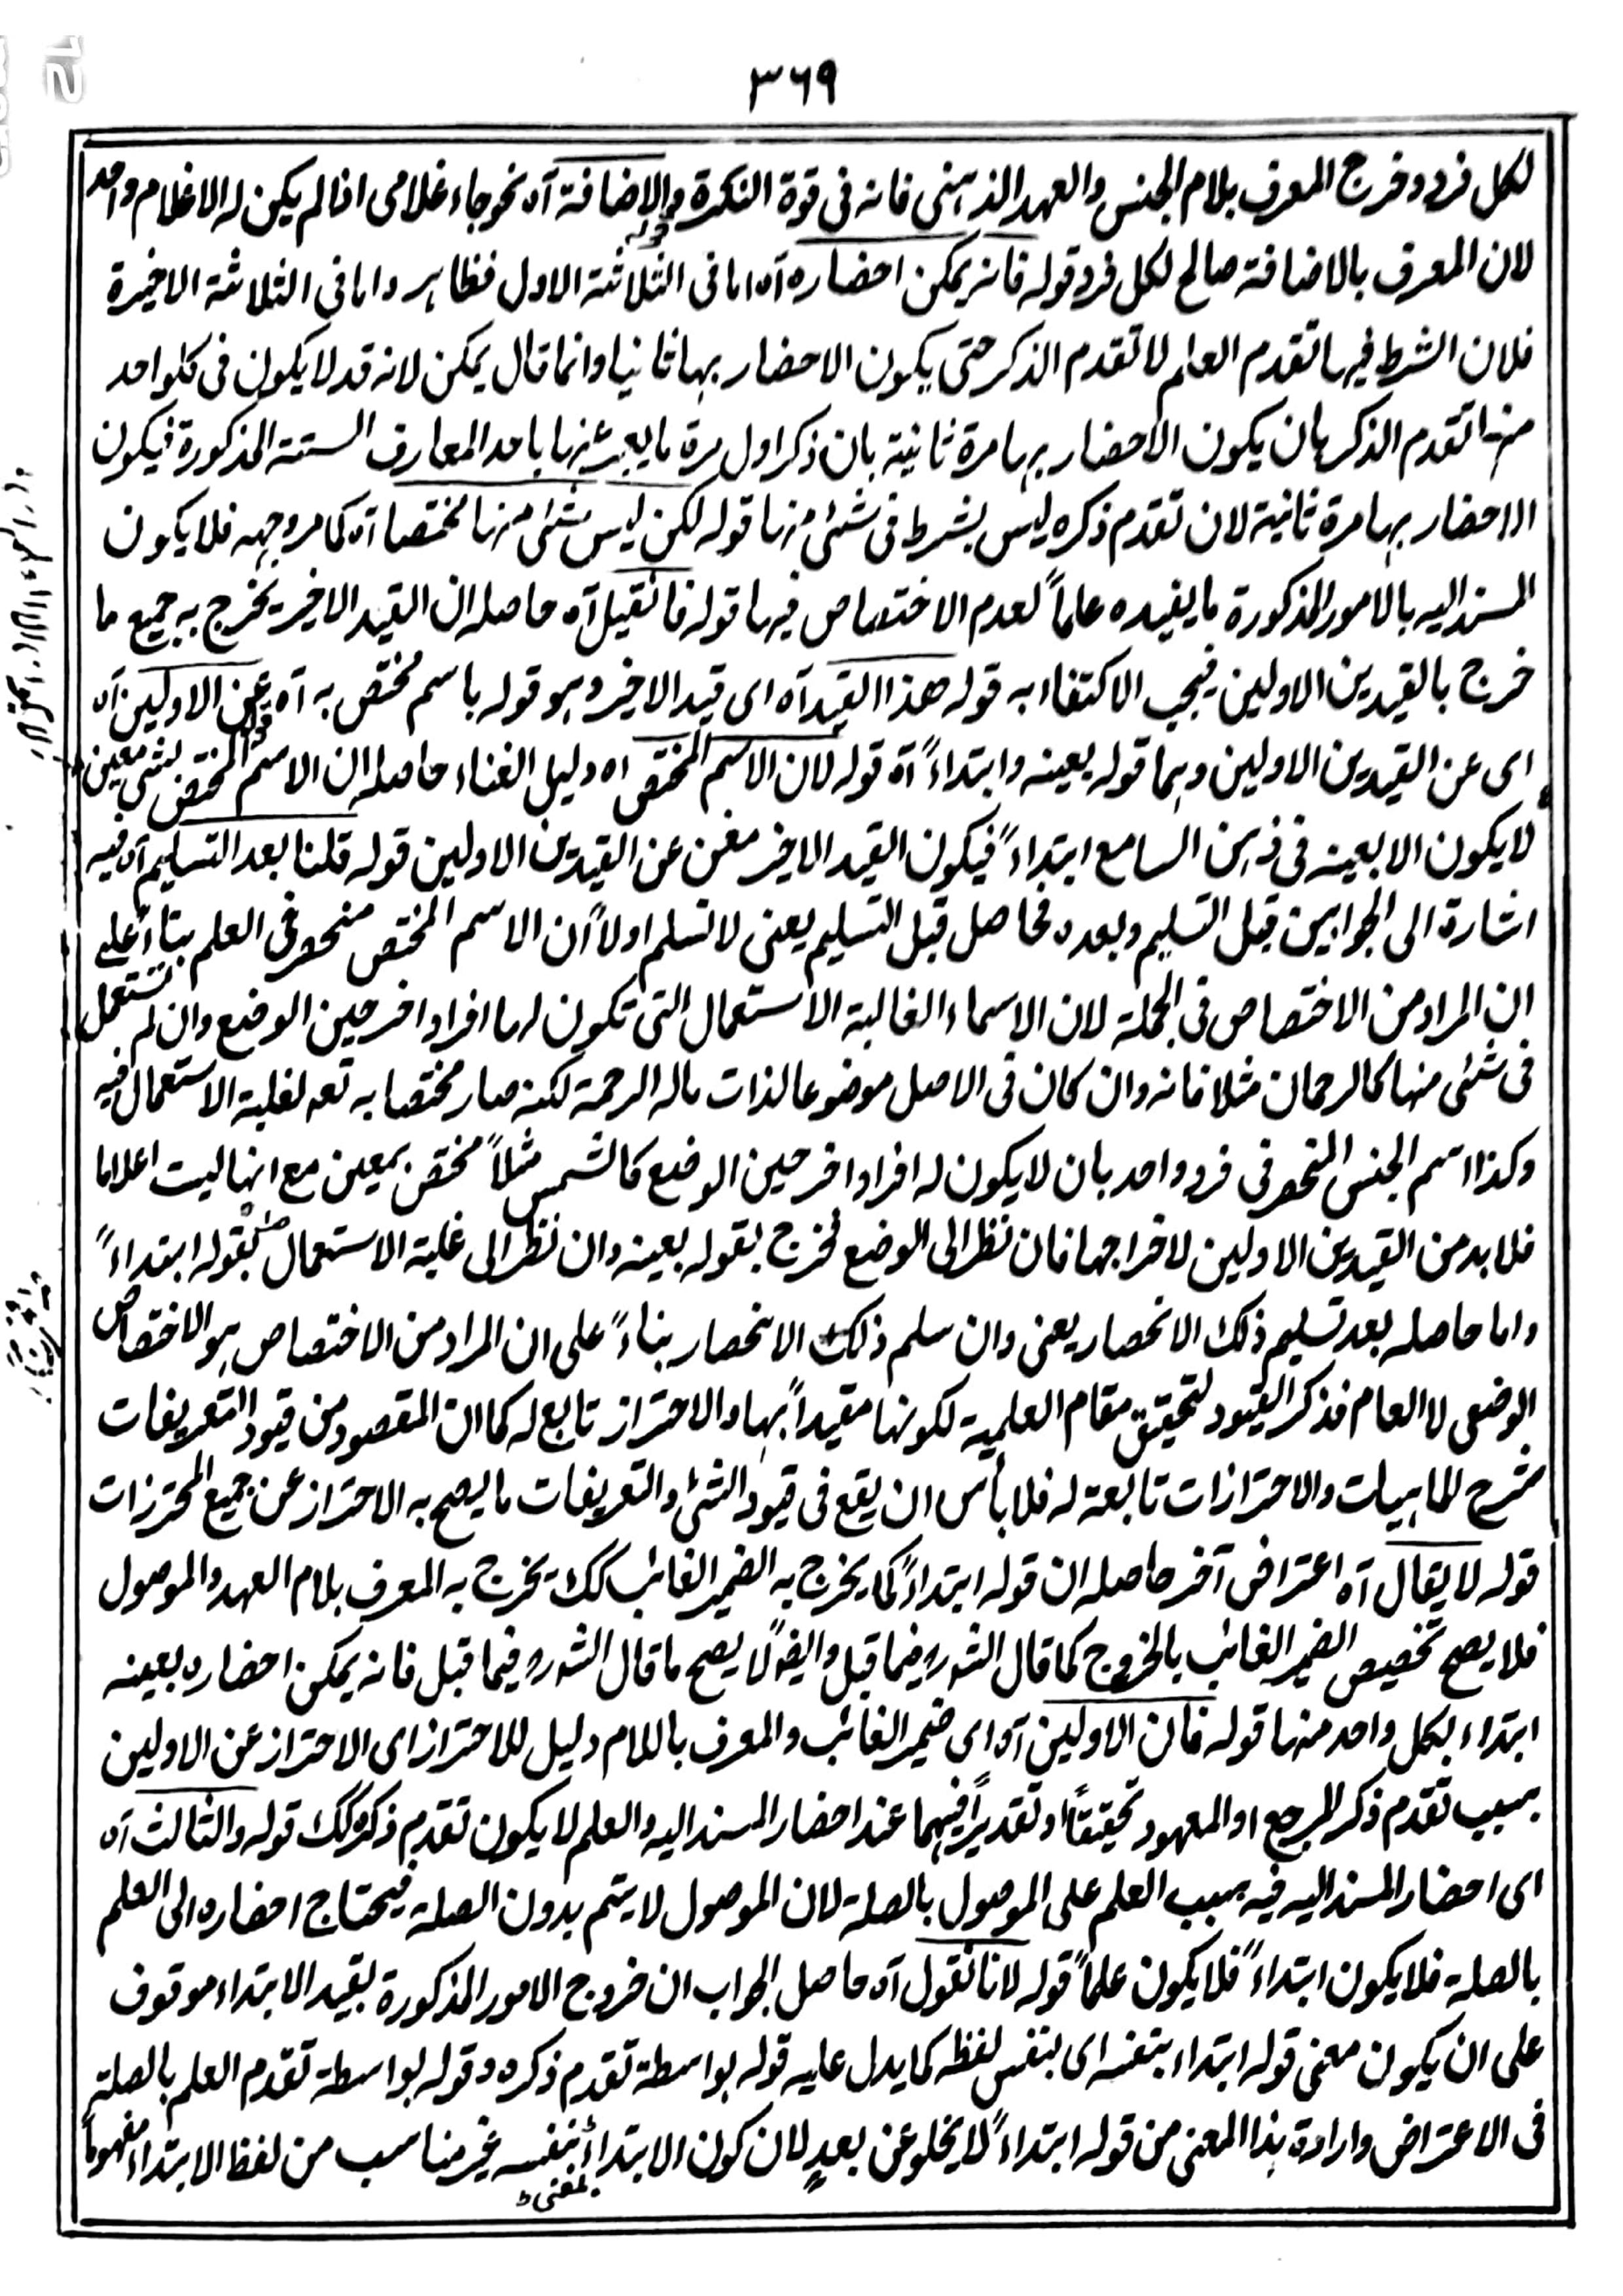 ٣٦٩
لكل فرد وخرج المعرف بلام الجنس والعهد الذهنى فانه فى قوة النكرة قوله والاضافة آه نحو جاء غلامى اذا لم يكن له الا غلام واحد
لان المعرف بالاضافة صالح لكل فرد قوله فانه يمكن احضاره آه اما فى الثلاثة الاول فظاهر واما فى الثلاثة الاخيرة
فلان الشرط فيها تقدم العلم لا تقدم الذكر حتى يكون الاحضار بها ثانيا وانما قال يمكن لانه قد لا يكون فى كلواحد
منها تقدم الذكر بان يكون الاحضار بها مرة ثانية بان ذكر اول مرة ما يعبر عنها باحد المعارف الستة المذكورة فيكون
الاحضار بها مرة ثانية لان تقدم ذكره ليس بشرط فى شئى منها قوله لكن ليس شئى منها مختصا آه كما مر وجهه فلا يكون
المسند اليه بالامور المذكورة ما يفيده علماً لعدم الاختصاص فيها قوله فان قيل آه حاصله ان القيد الاخير يخرج به جميع ما
خرج بالقيدين الاولين فيجب الاكتفاء به قوله هذا القيد آه اى قيد الاخير وهو قوله باسم مختص به آه قوله عن الاولين آه
اى عن القيدين الاولين وهما قوله بعينه وابتداءً آه قوله لان الاسم المختص اه دليل الغناء حاصله ان الاسم المختص بشئ معين
لا يكون الا بعينه فى ذهن السامع ابتداءً فيكون القيد الاخير مغن عن القيدين الاولين قوله قلنا بعد التسليم آه فيه
اشارة الى الجوابين قبل التسليم وبعده فحاصل قبل التسليم يعنى لا نسلم اولاً ان الاسم المختص منحصر فى العلم بناءً على
ان المراد من الاختصاص فى الجملة لان الاسماء الغالبة الاستعمال التى تكون لها افراد اخر حين الوضع وان لم تستعمل
فى شئى منها كالرحمان مثلا فانه وان كان فى الاصل موضوعا لذات ماله الرحمة لكنه صار مختصا به تعه لغلبة الاستعمال فيه
وكذا اسم الجنس المنحصر فى فرد واحد بان لا يكون له افراد اخر حين الوضع كالشمس مثلاً مختص بمعين مع انها ليت اعلاما
فلا بد من القيدين الاولين لاخراجها فان نظر الى الوضع فخرج بقوله بعينه وان نظر الى غلبة الاستعمال بقوله ابتداءً
واما حاصله بعد تسليم ذلك الانحصار يعنى وان سلم ذلك الانحصار بناءً على ان المراد من الاختصاص هو الاختصاص
الوضعى لا العام فذكر القيود لتحقيق مقام العلمية لكونها مقيداً بها والاحتراز تابع له كما ان المقصود من قيود التعريفات
شرح للماهيات والاحترازات تابعة له فلا بأس ان يقع فى قيود الشئ والتعريفات ما يصح به الاحتراز عن جميع المحترزات
قوله لا يقال آه اعتراض آخر حاصله ان قوله ابتداءً كما يخرج به الضمير الغائب كك يخرج به المعرف بلام العهد والموصول
فلا يصح تخصيص الضمير الغائب بالخروج كما قال الشه ره فيما قبل وايضاً لا يصح ما قال الشه ره فيما قبل فانه يمكن احضاره بعينه
ابتداء بكل واحد منها قوله فان الاولين آه اى ضمير الغائب والمعرف باللام دليل للاحتراز اى الاحتراز عن الاولين
بسبب تقدم ذكر المرجع او المعهود تحقيقاً او تقديراً فيهما عند احضار المسند اليه والعلم لا يكون تقدم ذكره كك قوله والثالث آه
اى احضار المسند اليه فيه بسبب العلم على الموصول بالصلة لان الموصول لا يتم بدون الصلة فيحتاج احضاره الى العلم
بالصلة فلا يكون ابتداءً فلا يكون علماً قوله لانا نقول آه حاصل الجواب ان خروج الامور المذكورة بقيد الابتداء موقوف
على ان يكون معنى قوله ابتداء بنفسه اى بنفس لفظه كما يدل عليه قوله بواسطة تقدم ذكره وقوله بواسطة تقدم العلم بالصلة
فى الاعتراض وارادة هذا المعنى من قوله ابتداءً لا يخلو عن بعدٍ لان كون الابتداء بمعنى بنفسه غير مناسب من لفظ الابتداء مفهوماً